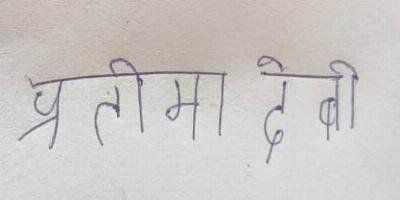 प्रतीमा देवी